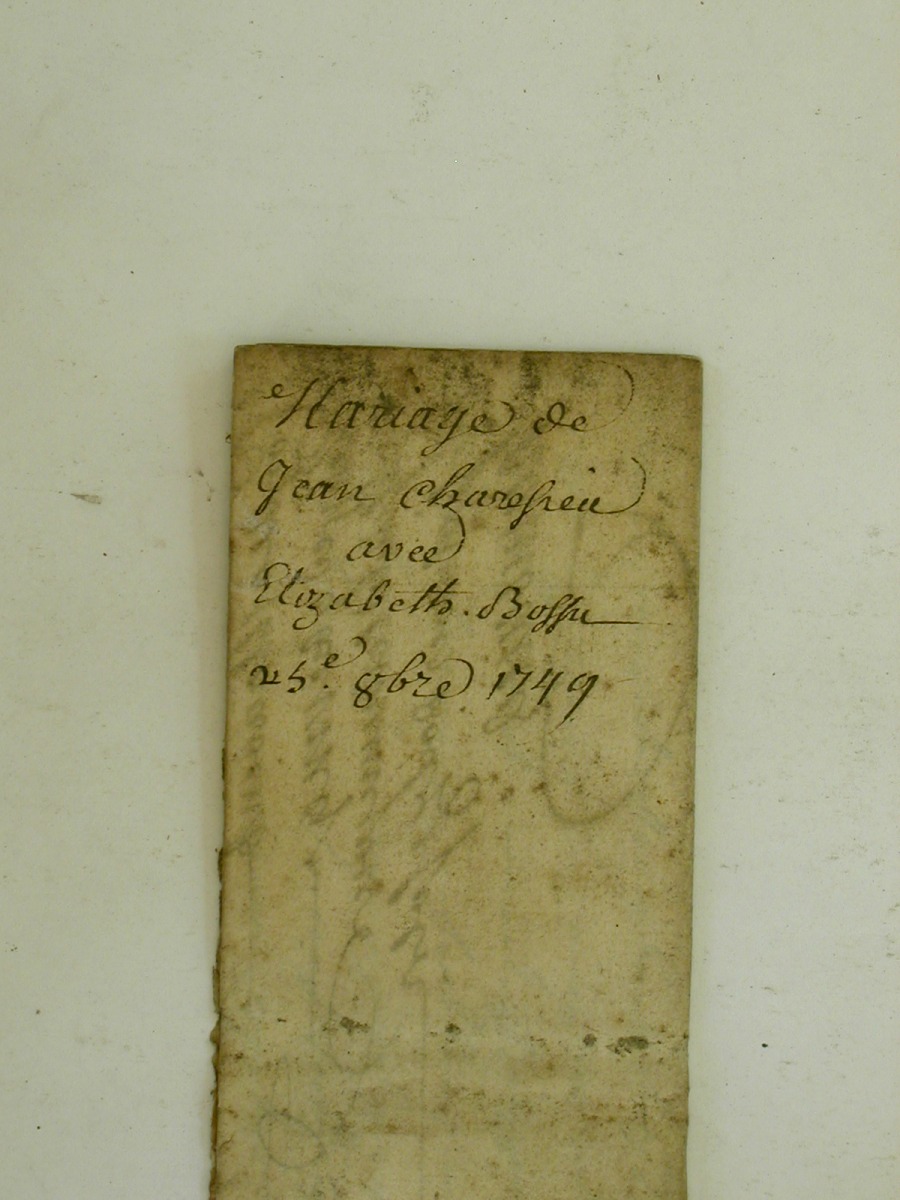 Mariage de
Jean Charespieu
avec
Elizabeth. Bossu
25e. 8bre 1749